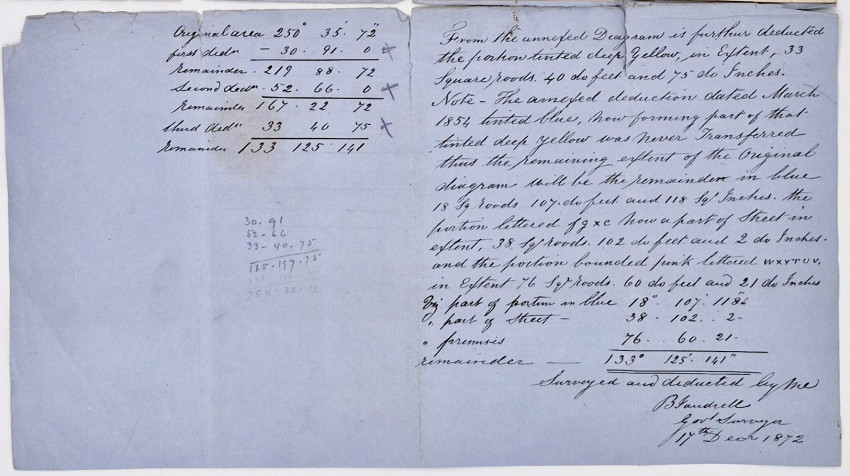 Original area 250° 35' 72"
first dedn - 30. 91. 0 x
Remainder. 219 88. 72
Second dedn. 52. 66. 0 x
Remainder 167. 22 72
third dedn 33 40 75 x
Remainder 133 125 141
30-91
52-66
33-40.75
115-197-75
250-88-72
From the annexed Diagram is further deducted
the portion tinted deep Yellow, in Extent, 33
Square, roods. 40 do feet and 75 do Inches.
Note - The annexed deduction dated March
1854 tinted blue, now forming part of that
tinted deep yellow was never Transferred
thus the remaining extent of the Original
diagram will be the remainder in blue
18 Sq roods 107. do feet and 118 Sqr Inches. the
portion lettered f g x c Now a part of Street in
extent, 38 Sqr roods. 102 do feet and 2 do Inches.
and the portion bounded pink lettered W X Y T U V,
in Extent 76 Sqr roods. 60 do feet and 21 do Inches
Viz part of portion in blue 18° 107' 118"
" part of Street - 38. 102. 2-
" premises 76. 60. 21-
remainder — 133° 125' 141"
Surveyed and deducted by me
Govt Surveyor
17th Decr 1872